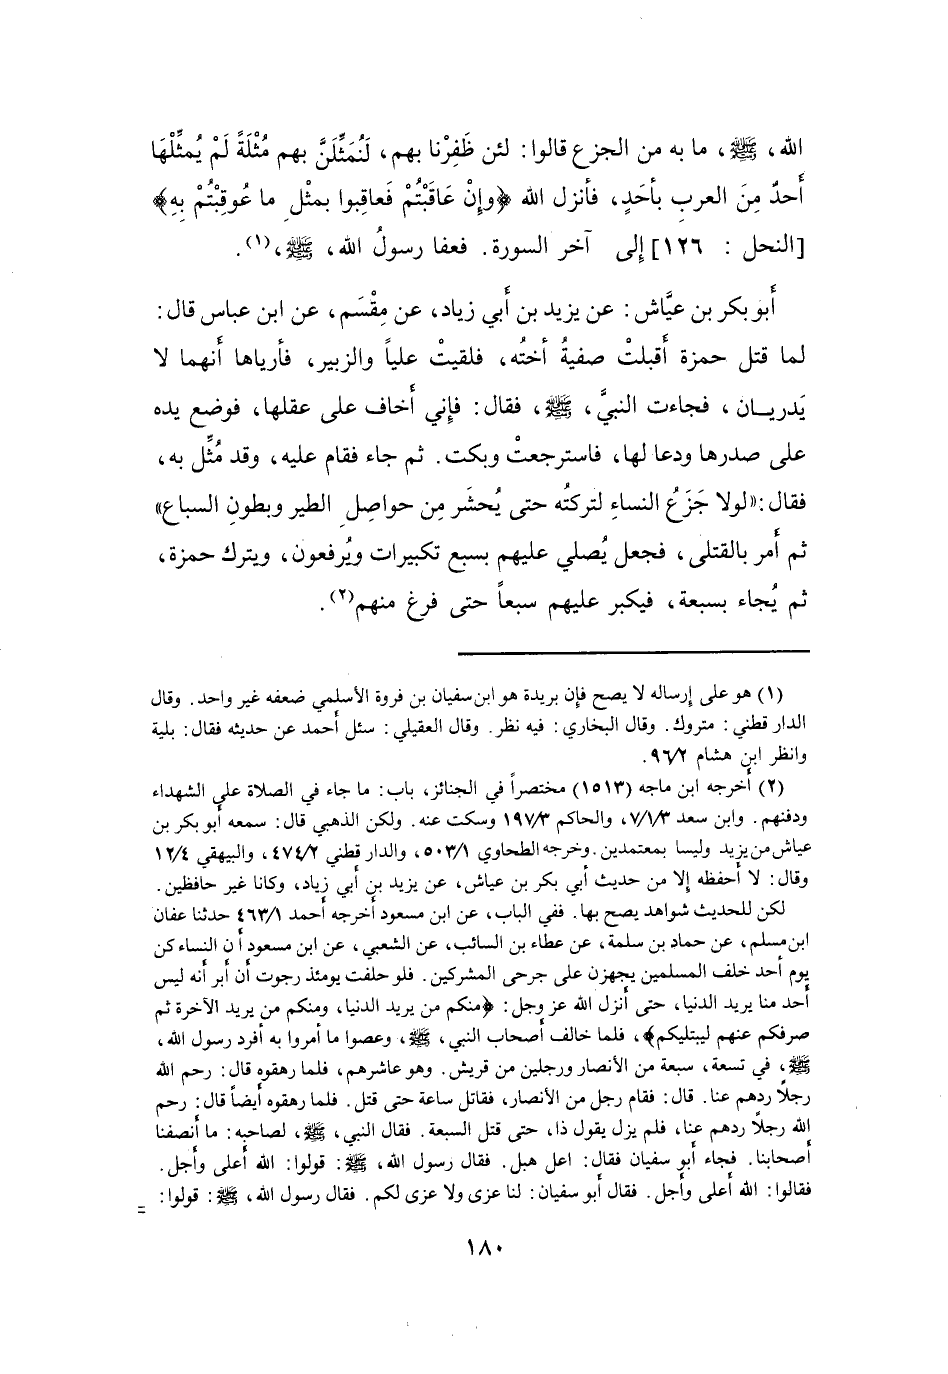 الله، ﷺ، ما به من الجزع قالوا: لئن ظَفِرْنا بهم، لَنُمَثِّلَنَّ بهم مُثْلَةً لَمْ يُمثِّلْهَا
أَحدٌ مِنَ العربِ بأحَدٍ، فأنزل الله ﴿وإِنْ عَاقَبْتُمْ فَعاقِبوا بمثْلِ ما عُوقِبْتُمْ بِهِ﴾
[النحل : ١٢٦] إلى آخر السورة. فعفا رسولُ الله، ﷺ،(١).
أبو بكر بن عيَّاش: عن يزيد بن أبي زياد، عن مِقْسَم، عن ابن عباس قال:
لما قتل حمزة أقبلتْ صفيةُ أختُه، فلقيتْ علياً والزبير، فأرياها أنهما لا
يَدريـان، فجاءت النبيَّ، ﷺ، فقال: فإني أخاف على عقلها، فوضع يده
على صدرها ودعا لها، فاسترجعتْ وبكت. ثم جاء فقام عليه، وقد مُثِّل به،
فقال: «لولا جَزَعُ النساءِ لتركتُه حتى يُحشَر مِن حواصِلِ الطير وبطونِ السباع»
ثم أمر بالقتلى، فجعل يُصلي عليهم بسبع تكبيرات ويُرفعون، ويترك حمزة،
ثم يُجاء بسبعة، فيكبر عليهم سبعاً حتى فرغ منهم(٢).
(١) هو على إرساله لا يصح فإن بريدة هو ابن سفيان بن فروة الأسلمي ضعفه غير واحد. وقال
الدار قطني: متروك. وقال البخاري: فيه نظر. وقال العقيلي: سئل أحمد عن حديثه فقال: بلية
وانظر ابن هشام ٩٦/٢.
(٢) أخرجه ابن ماجه (١٥١٣) مختصراً في الجنائز، باب: ما جاء في الصلاة على الشهداء
ودفنهم. وابن سعد ٧/١/٣، والحاكم ١٩٧/٣ وسكت عنه. ولكن الذهبي قال: سمعه أبو بكر بن
عياش من يزيد وليسا بمعتمدين. وخرجه الطحاوي ٥٠٣/١، والدار قطني ٤٧٤/٢، والبيهقي ١٢/٤
وقال: لا أحفظه إلا من حديث أبي بكر بن عياش، عن يزيد بن أبي زياد، وكانا غير حافظين.
لكن للحديث شواهد يصح بها. ففي الباب، عن ابن مسعود أخرجه أحمد ٤٦٣/١ حدثنا عفان
ابن مسلم، عن حماد بن سلمة، عن عطاء بن السائب، عن الشعبي، عن ابن مسعود أن النساء كن
يوم أحد خلف المسلمين يجهزن على جرحى المشركين. فلو حلفت يومئذ رجوت أن أبر أنه ليس
أحد منا يريد الدنيا، حتى أنزل الله عز وجل: ﴿منكم من يريد الدنيا، ومنكم من يريد الآخرة ثم
صرفكم عنهم ليبتليكم﴾، فلما خالف أصحاب النبي، ﷺ، وعصوا ما أمروا به أفرد رسول الله،
ﷺ، في تسعة، سبعة من الأنصار ورجلين من قريش. وهو عاشرهم، فلما رهقوه قال: رحم الله
رجلاً ردهم عنا. قال: فقام رجل من الأنصار، فقاتل ساعة حتى قتل. فلما رهقوه أيضاً قال: رحم
الله رجلاً ردهم عنا، فلم يزل يقول ذا، حتى قتل السبعة. فقال النبي، ﷺ، لصاحبه: ما أنصفنا
أصحابنا. فجاء أبو سفيان فقال: اعل هبل. فقال رسول الله، ﷺ: قولوا: الله أعلى وأجل.
فقالوا: الله أعلى وأجل. فقال أبو سفيان: لنا عزى ولا عزى لكم. فقال رسول الله، ﷺ: قولوا: =
١٨٠